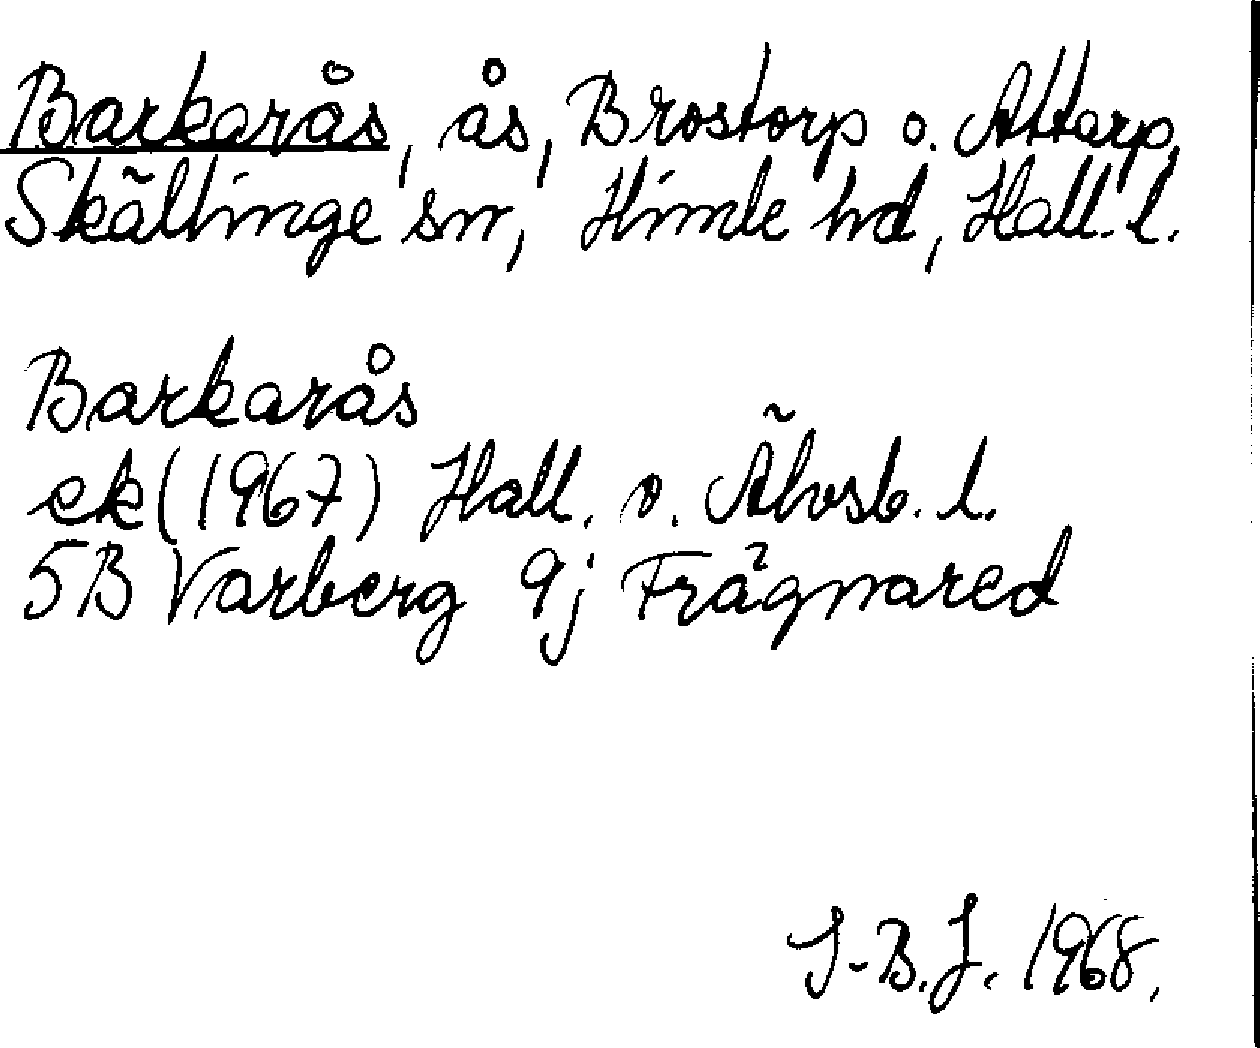 Barkarås, ås, Brostorp o. Attarp,
Skällinge sn, Himle hd, Hall. l.
Barkarås
ek (1967) Hall. o. Älvsb. l.
5B Varberg 9j Frägnared
I-B.J. 1968.